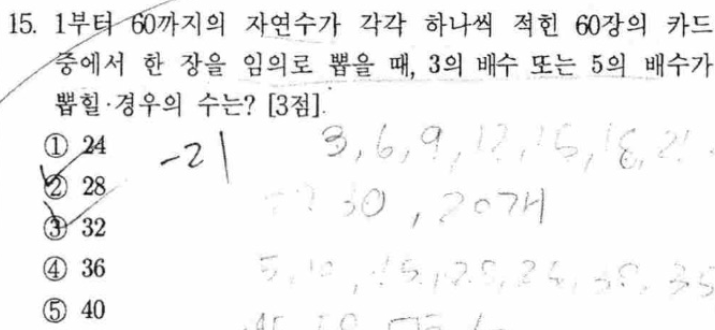 15. 1부터 60까지의 자연수가 각각 하나씩 적힌 60장의 카드
중에서 한 장을 임의로 뽑을 때, 3의 배수 또는 5의 배수가
뽑힐 경우의 수는? [3점]
① 24
-21
3, 6, 9, 12, 15, 18, 21
② 28
30, 20개
③ 32
④ 36
5, 10, 15, 20, 25, 30, 35
⑤ 40